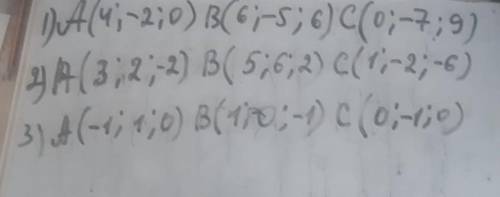 1) A(4;-2;0) B(6;-5;6) C(0;-7;9)
2) A(3;2;-2) B(5;6;2) C(1;-2;-6)
3) A(-1;1;0) B(1;0;-1) C(0;-1;0)